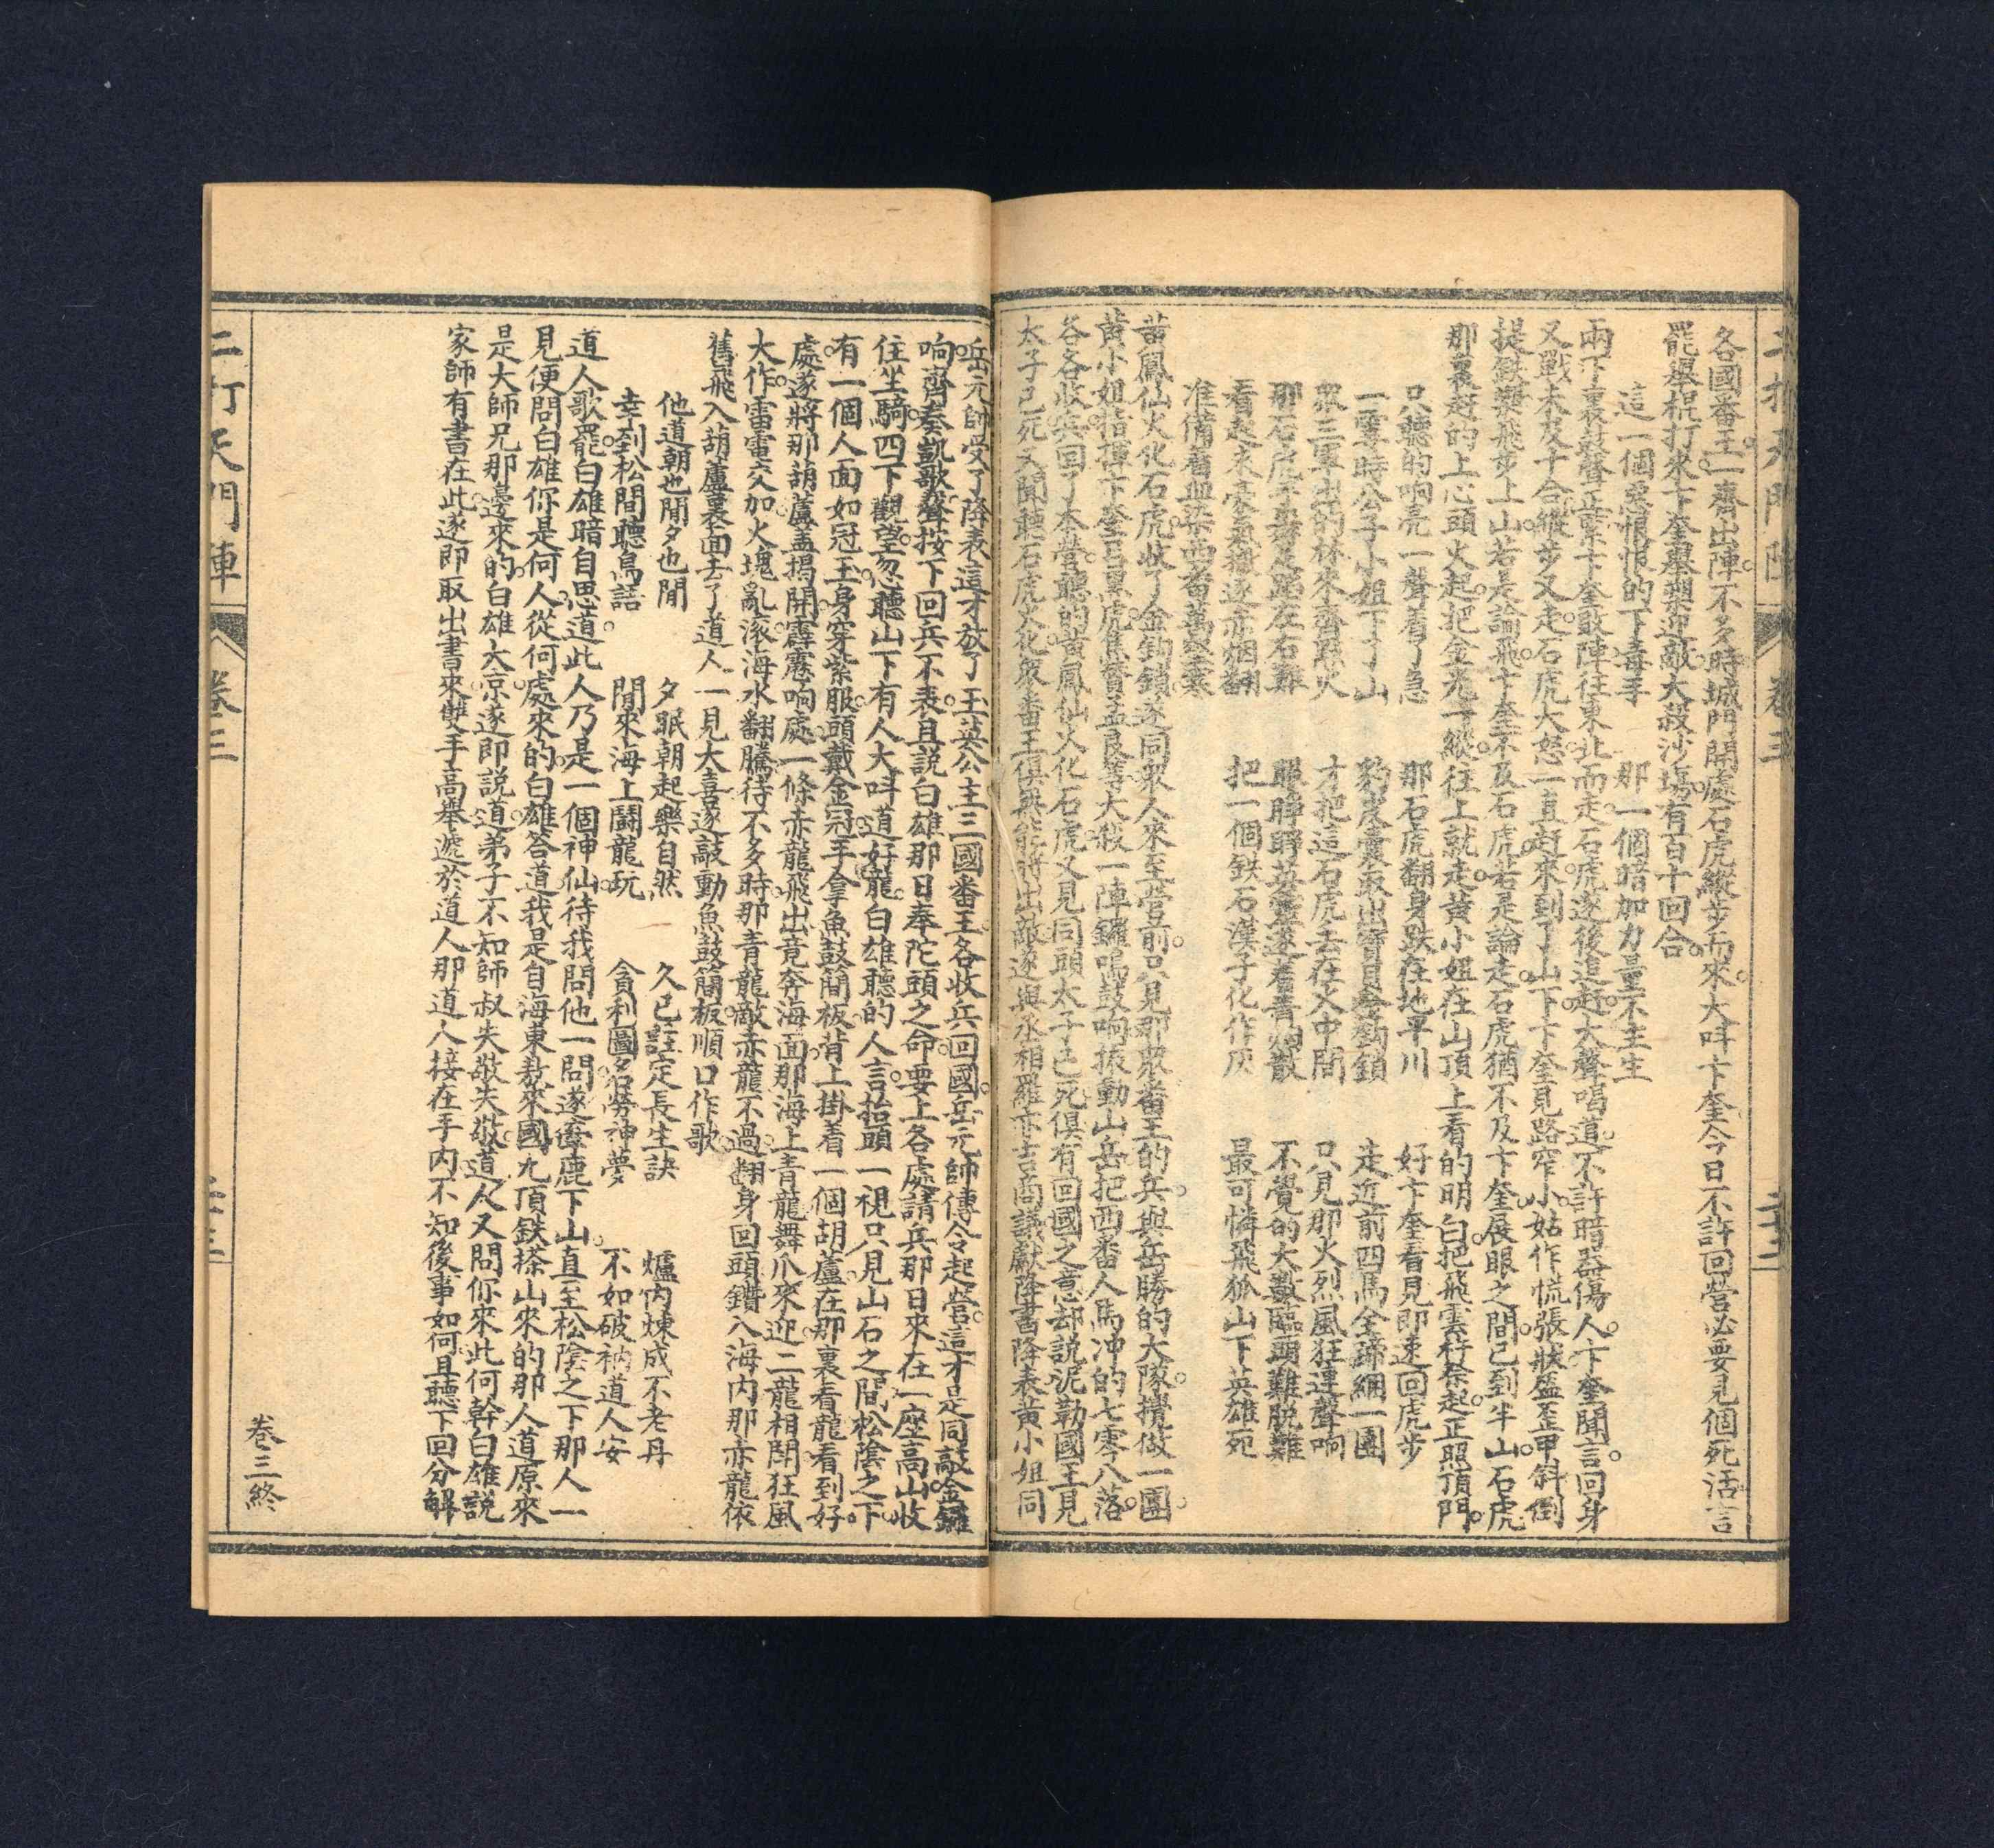 各國番王一齊出陣不多時城門開處石虎縱步而來大呌卞奎今日不許回營必要見個死活言
罷舉棍打來卞奎舉槊迎敵大殺沙塲有百十回合
這一個惡恨恨的下毒手　那一個暗加力量不主生
兩下裏鼓聲正緊卞奎敗陣往東北而走石虎遂後追赶大聲唱道不許暗器傷人卞奎聞言回身
又戰未及十合縱步又走石虎大怒一直赶來到了山下卞奎見路窄小姑作慌張狀盔歪甲斜倒
提鉄槊飛步上山若是論飛卞奎不及石虎若是論走石虎猶不及卞奎展眼之間已到半山石虎
那裏赶的上心頭火起把金光一縱往上就走黄小姐在山頂上看的明白把飛雲杵祭起正照頂門
只聽的响亮一聲着了急　那石虎翻身跌在地平川　好卞奎看見即速回虎步
一霎時公子小姐下了山　豹皮囊取出寳貝金鈎鎖　走近前四馬全蹄綑一團
衆三軍出的林來齊點火　才把這石虎去在入中間　只見那火烈風狂連聲响
那石虎手舞足蹈左右難　眼睜睜英靈遂着青烟散　不覺的大數臨頭難脫難
看起來毫氣遂亦烟翻　把一個鉄石漢子化作灰　最可憐飛狐山下英雄死
准備着血染西番萬里寨
黄鳳仙火化石虎收了金鈎鎖遂同衆人來至營前只見那衆番王的兵與岳勝的大隊攪做一團
黄小姐指揮卞奎玉黑虎焦贊孟良等大殺一陣鑼鳴鼓响振動山岳把西番人馬冲的七零八落
各各收兵回了本營聽的黄鳳仙火化石虎又見同頭太子已死俱有回國之意却説泥勒國王見
太子已死又聞聽石虎火化衆番王俱無能將出敵遂與丞相羅亦吉商議獻降書降表黄小姐同
岳元帥受了降表這才放了王英公主三國番王各收兵回國岳元帥傳令起營這才是同敲金鐙
响齊奏凱歌聲按下回兵不表且説白雄那日奉陀頭之命要上各處請兵那日來在一座高山收
住坐騎四下觀望忽聽山下有人大呌道好龍白雄聽的人言抬頭一視只見山石之間松陰之下
有一個人面如冠玉身穿紫服頭戴金冠手拿魚鼓簡板背上掛着一個胡蘆在那裏看龍看到好
處遂將那葫蘆盖揭開霹靂响處一條赤龍飛出竟奔海面那海上青龍舞爪來迎二龍相鬥狂風
大作雷電交加火塊亂滚海水翻騰待不多時那青龍敵赤龍不過翻身回頭鑽入海内那赤龍依
舊飛入葫蘆裏面去了道人一見大喜遂敲動魚鼓簡板順口作歌
他道朝也閒夕也閒　夕眠朝起樂自然　久已註定長生訣　爐内煉成不老丹
幸到松間聽鳥語　閒來海上鬪龍玩　貪利圖名勞神夢　不如破衲道人安
道人歌罷白雄暗自思道此人乃是一個神仙待我問他一問遂牽鹿下山直至松陰之下那人一
見便問白雄你是何人從何處來的白雄答道我是自海東敖來國九頂鉄搽山來的那人道原來
是大師兄那邊來的白雄大京遂即説道弟子不知師叔失敬失敬道人又問你來此何幹白雄説
家師有書在此遂即取出書來雙手高舉遞於道人那道人接在手内不知後事如何且聽下回分解
卷三終
二打天門陣　卷三